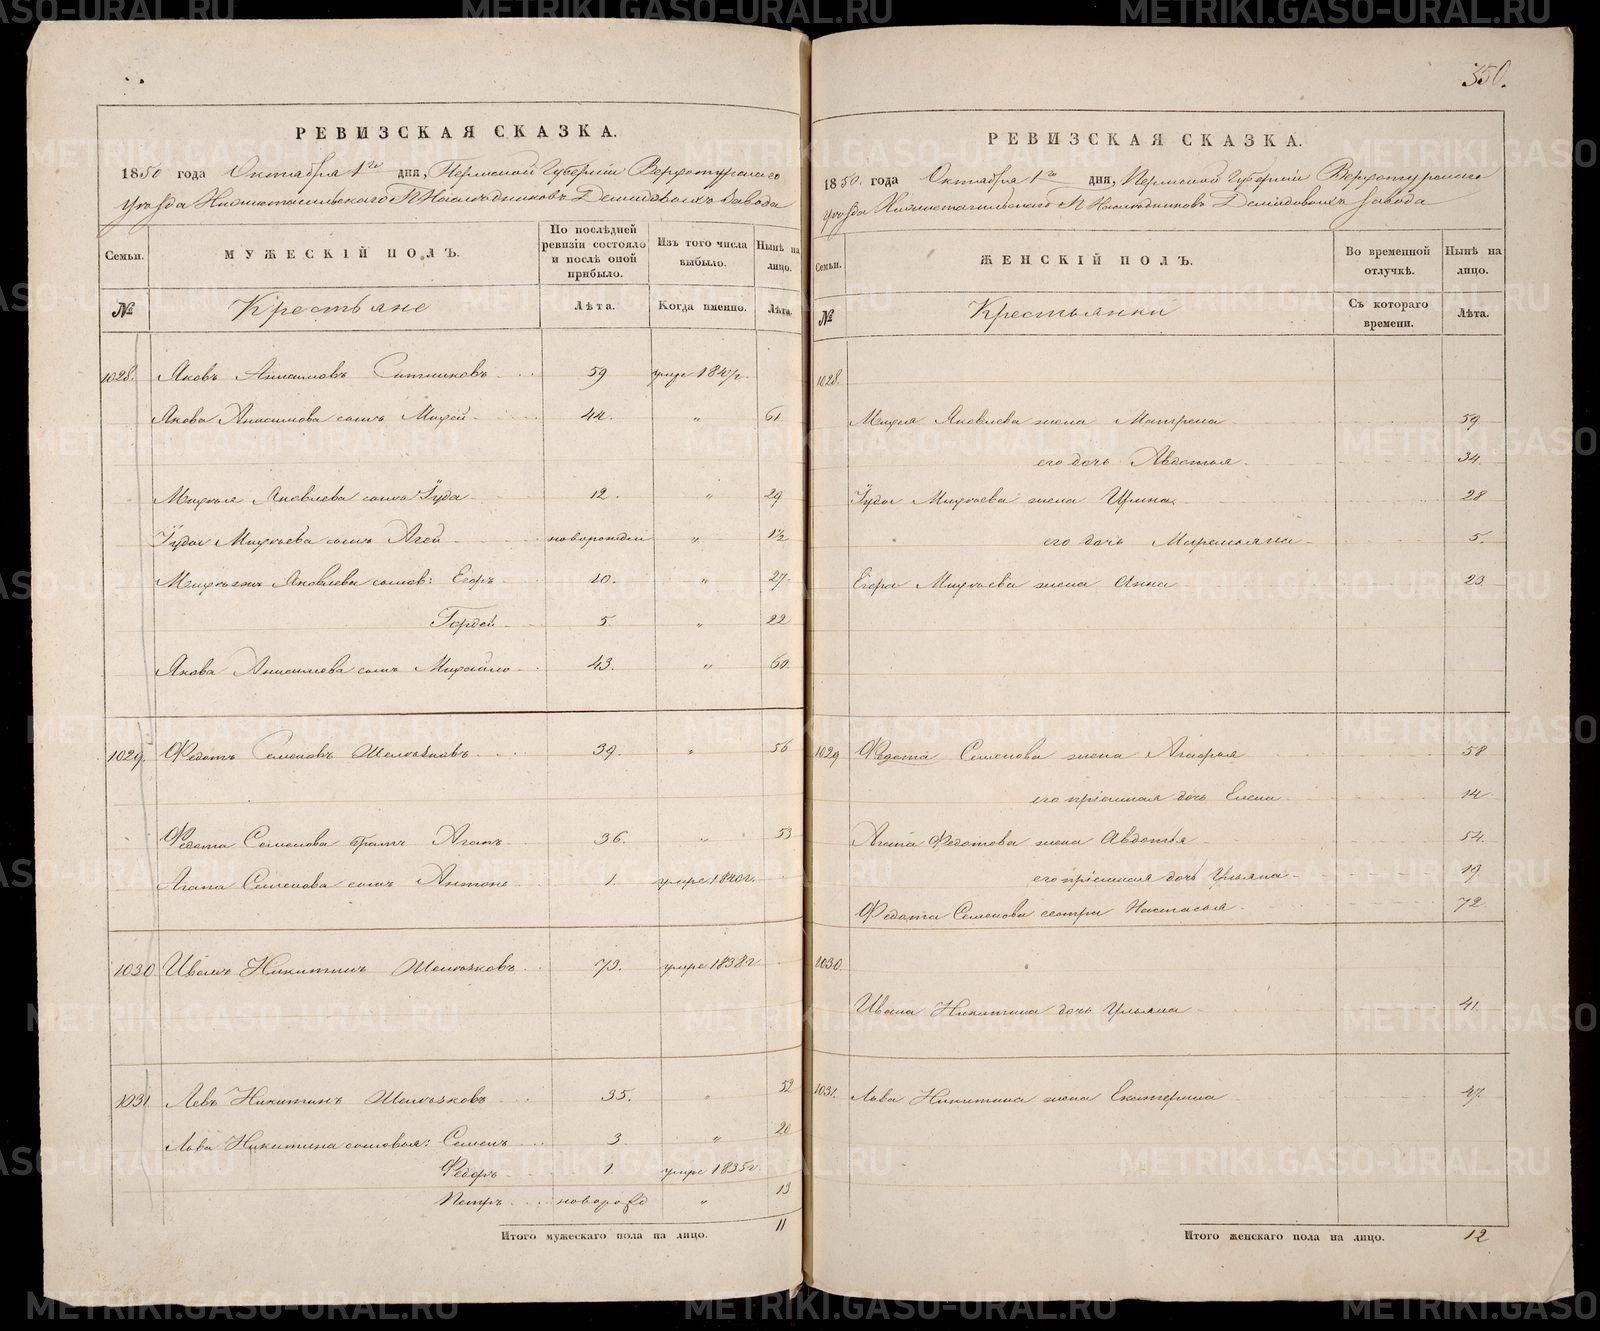 350.
РЕВИЗСКАЯ СКАЗКА.
1850 года Октября 1го дня, Пермской Губернiи Верхотурскаго
уѣзда Нижнетагильскаго Наслѣдниковъ Демидовыхъ завода
Семьи. МУЖЕСКIЙ ПОЛЪ. По послѣдней ревизiи состояло и послѣ оной прибыло. Изъ того числа выбыло. Нынѣ на лицо.
№ Крестьяне Лѣта. Когда именно. Лѣта.
1028. Яковъ Анисимовъ Ситниковъ 59 умре 1847г.
Якова Анисимова сынъ Михей 44 " 61
Михея Яковлева сынъ Iуда 12. " 29
Iуды Михѣева сынъ Агей новорожден " 1½
Михѣя Яковлева сынов: Егоръ 10. " 27
Гордей 5. " 22
Якова Анисимова сынъ Михайло 43. " 60
1029. Федотъ Семеновъ Шелковъ 39. " 56
Федота Семенова братъ Агапъ 36. " 53
Агапа Семенова сынъ Антонъ 1. умре 1840г.
1030 Иванъ Никитинъ 73. умре 1838г.
1031 Левъ Никитинъ 35. " 52
Льва Никитина сыновья: Семенъ 3 " 20
Федоръ 1. умре 1835г.
Петръ новорожд " 13
Итого мужескаго пола на лицо. 11
РЕВИЗСКАЯ СКАЗКА.
1850. года Октября 1го дня, Пермской Губернiи Верхотурскаго
уѣзда Нижнетагильскаго Наслѣдниковъ Демидовыхъ завода
Семьи. ЖЕНСКIЙ ПОЛЪ. Во временной отлучкѣ. Нынѣ на лицо.
№ Крестьянки Съ котораго времени. Лѣта.
1028.
Михея Яковлева жена Матрена 59
его дочь Авдотья 34
Iуды Михѣева жена Ирина 28
его дочь Маремьяна 5.
Егора Михѣева жена Анна 23
1029 Федота Семенова жена Агафья 58
его прiемная дочь Елена 14
Агапа Федотова жена Авдотья 54.
его прiемная дочь Ульяна 19
Федота Семенова сестра Настасья 72
1030.
Ивана Никитина дочь Ульяна 41.
1031. Льва Никитина жена Екатерина 47.
Итого женскаго пола на лицо. 12
METRIKI.GASO-URAL.RU